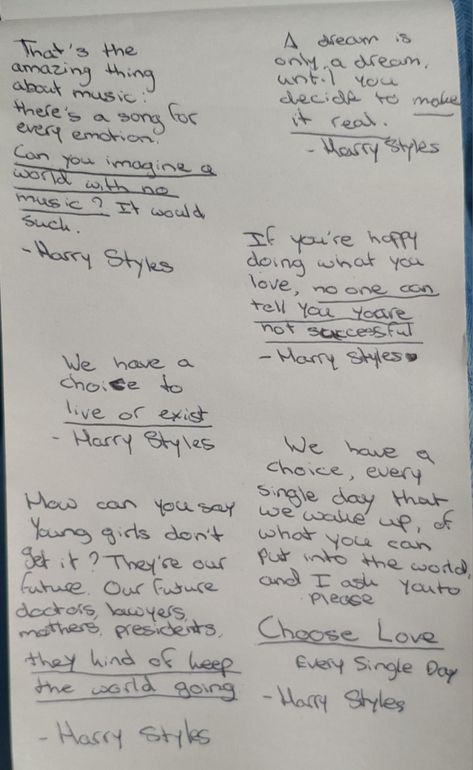 That's the
amazing thing
about music:
there's a song for
every emotion.
Can you imagine a
world with no
music? It would
such.
- Harry Styles
A dream is
only a dream,
until you
decide to make
it real.
- Harry Styles
If you're happy
doing what you
love, no one can
tell you you're
not successful
- Harry Styles
We have a
choice to
live or exist
- Harry Styles
We have a
choice, every
single day that
we wake up, of
what you can
put into the world
and I ask you to
please
Choose Love
Every Single Day
- Harry Styles
How can you say
Young girls don't
get it? They're our
future. Our future
doctors, lawyers,
mothers, presidents,
they kind of keep
the world going
- Harry Styles